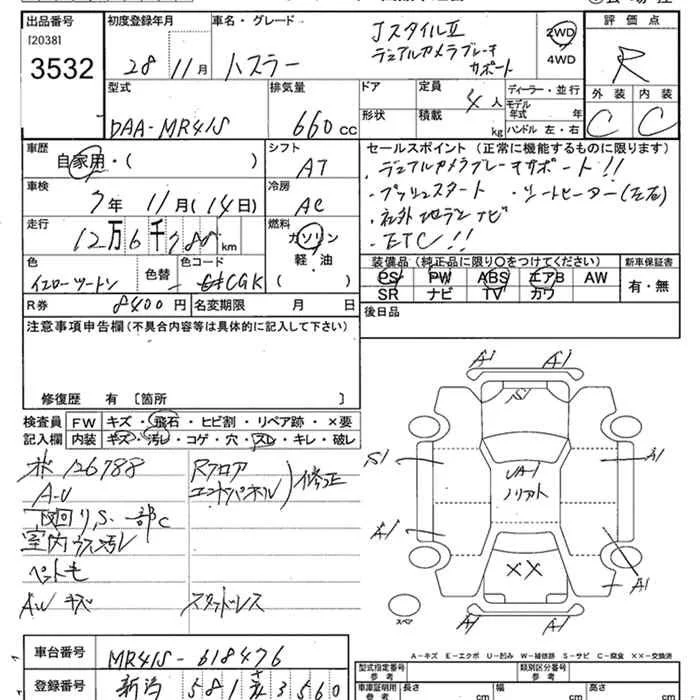 出品番号 初度登録年月 車名・グレード 評価点
[2038]
3532
28 11月 ハスラー
JスタイルⅡ
デュアルカメラブレーキ
サポート
2WD
4WD
R
型式 排気量 ドア 定員 ディーラー・並行
モデル
年式 年
ハンドル 左・右
DAA-MR41S 660 cc
4人
形状 積載 kg
外装 内装
C C
車歴 シフト
自家用・( ) AT
車検 冷房
7年 11月(14日) AC
走行 燃料
12万6千788km ガソリン
軽・油
( )
色 色替 色コード
イエローツートン CGK
R券 8400円 名変期限 月 日
セールスポイント (正常に機能するものに限ります)
・デュアルカメラブレーキサポート!!
・プッシュスタート ・シートヒーター(左右)
・社外地デジナビ
・ETC!!
装備品(純正品に限り○をつけてください) 新車保証書
PS PW ABS エアB AW 有・無
SR ナビ TV カワ
後日品
注意事項申告欄(不具合内容等は具体的に記入して下さい)
修復歴 有 [箇所 ]
検査員 FW キズ・飛石・ヒビ割・リペア跡・×要
記入欄 内装 キズ・汚レ・コゲ・穴・スレ・キレ・破レ
米 126788
A-U
下回り、S、一部C
室内 ウス汚レ
ペット毛
AW キズ
Rフロア
エンドパネル) 修正
スタッドレス
A1 A1
S1
S1 A1
ノリアト
A1
XX
A1
A1 A1
スペア
A-キズ E-エクボ U-凹み W-補修跡 S-サビ C-腐食 ××-交換済
車台番号 MR41S-618476
登録番号 新潟 581 3560
型式指定番号
参考
類別区分番号
参考
車庫証明用
参考
長さ cm 幅 cm 高さ cm